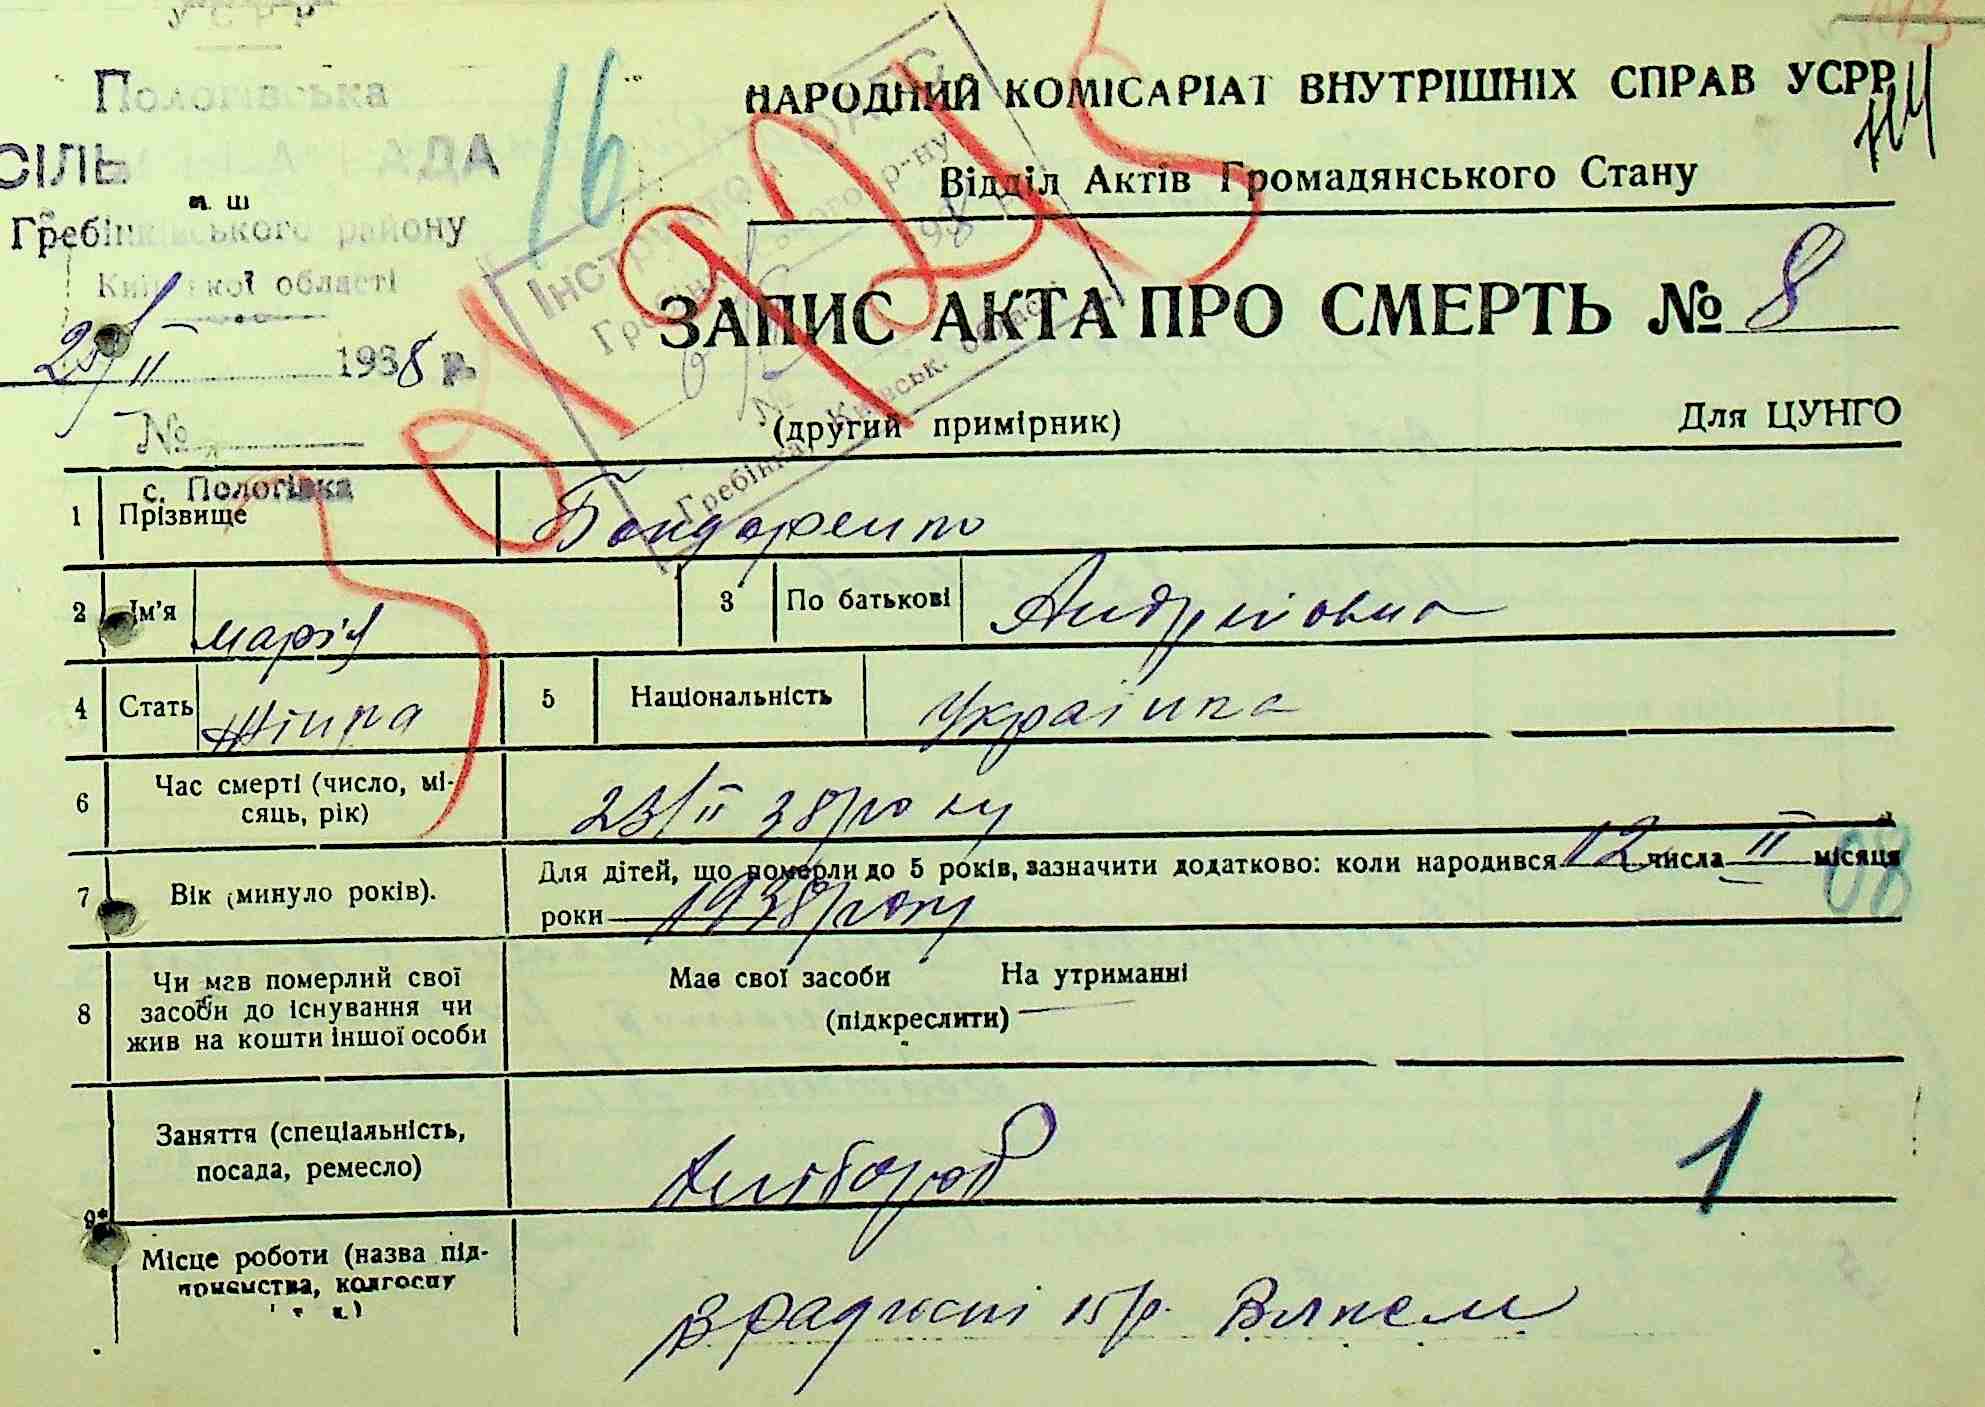 Пологівська
СІЛЬ АДА
Гребінківського району
Київської області
25/II 1938 р.
№
с. Пологівка
16
НАРОДНИЙ КОМІСАРІАТ ВНУТРІШНІХ СПРАВ УСРР
Відділ Актів Громадянського Стану
ЗАПИС АКТА ПРО СМЕРТЬ № 8
(другий примірник) Для ЦУНГО
1 Прізвище Бондаренко
2 Ім'я Марія 3 По батькові Андріївна
4 Стать Жінка 5 Національність Українка
6 Час смерті (число, мі-
сяць, рік) 23/II 38/року
7 Вік (минуло років). Для дітей, що померли до 5 років, зазначити додатково: коли народився 12 числа II місяця
роки 1938/року
08
8 Чи мав померлий свої
засоби до існування чи
жив на кошти іншої особи
Має свої засоби На утриманні
(підкреслити)
9* Заняття (спеціальність,
посада, ремесло)
1
Місце роботи (назва під-
приємства, колгоспу
і т. д.)
В радгоспі